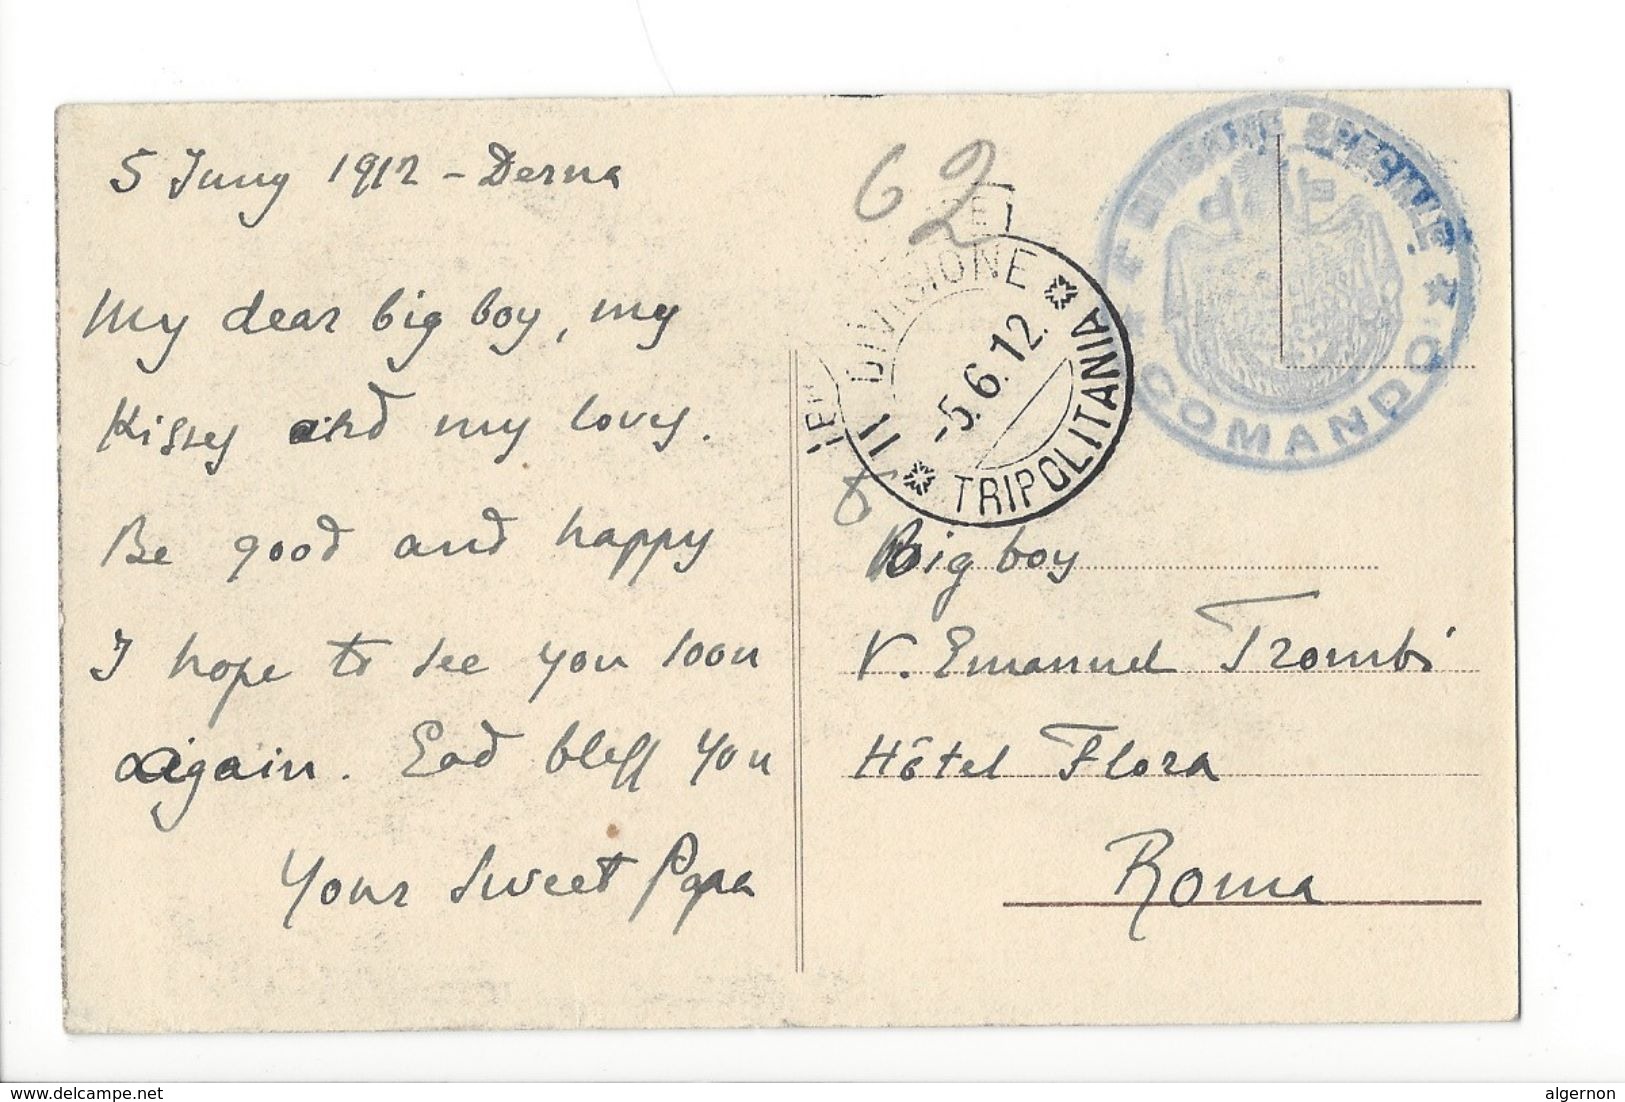 5 Juny 1912 - Derna
My dear big boy, my
Kisses and my loves.
Be good and happy
I hope to see you soon
again. God bless you
Your sweet Papa
62
II DIVISIONE
-5.6.12.
TRIPOLITANIA
DIVISIONE SPECIALE
COMANDO
Big boy
V. Emanuel Trombi
Hôtel Flora
Roma
www.delcampe.net
algernon